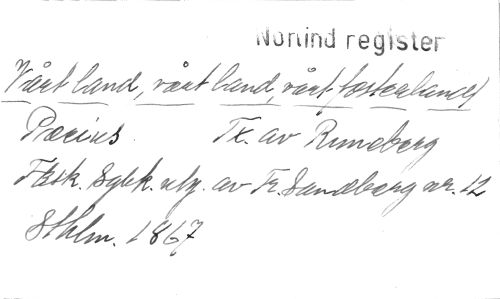 Nonind register
Vårt land, vårt land, vårt fosterland
Pacius. Tx. av Runeberg
Fksk. Sgbk. utg. av Fr. Sandberg nr. 12
Sthlm. 1867